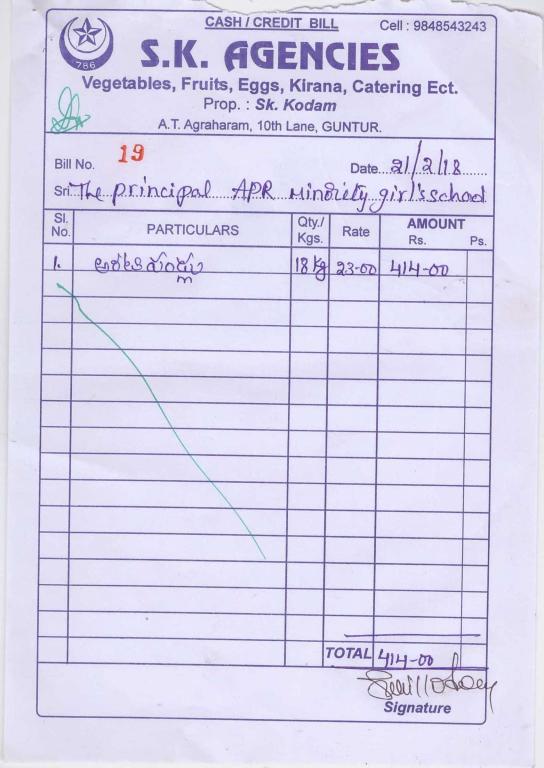 CASH / CREDIT BILL
Cell : 9848543243
786
S.K. AGENCIES
Vegetables, Fruits, Eggs, Kirana, Catering Ect.
Prop. : Sk. Kodam
A.T. Agraharam, 10th Lane, GUNTUR.
Bill No. 19
Date 21/2/18
Sri The principal APR Minority girl's school
Sl. No. PARTICULARS Qty./ Kgs. Rate AMOUNT Rs. Ps.
1. అరటి పండ్లు 18 kg 23-00 414-00
TOTAL 414-00
Signature